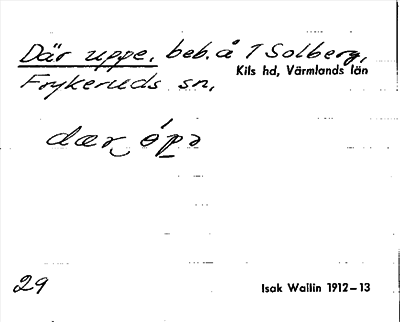 Där uppe, beb. å 1 Solberg,
Kils hd, Värmlands län
Frykeruds sn,
dær ópə
29
Isak Wallin 1912–13